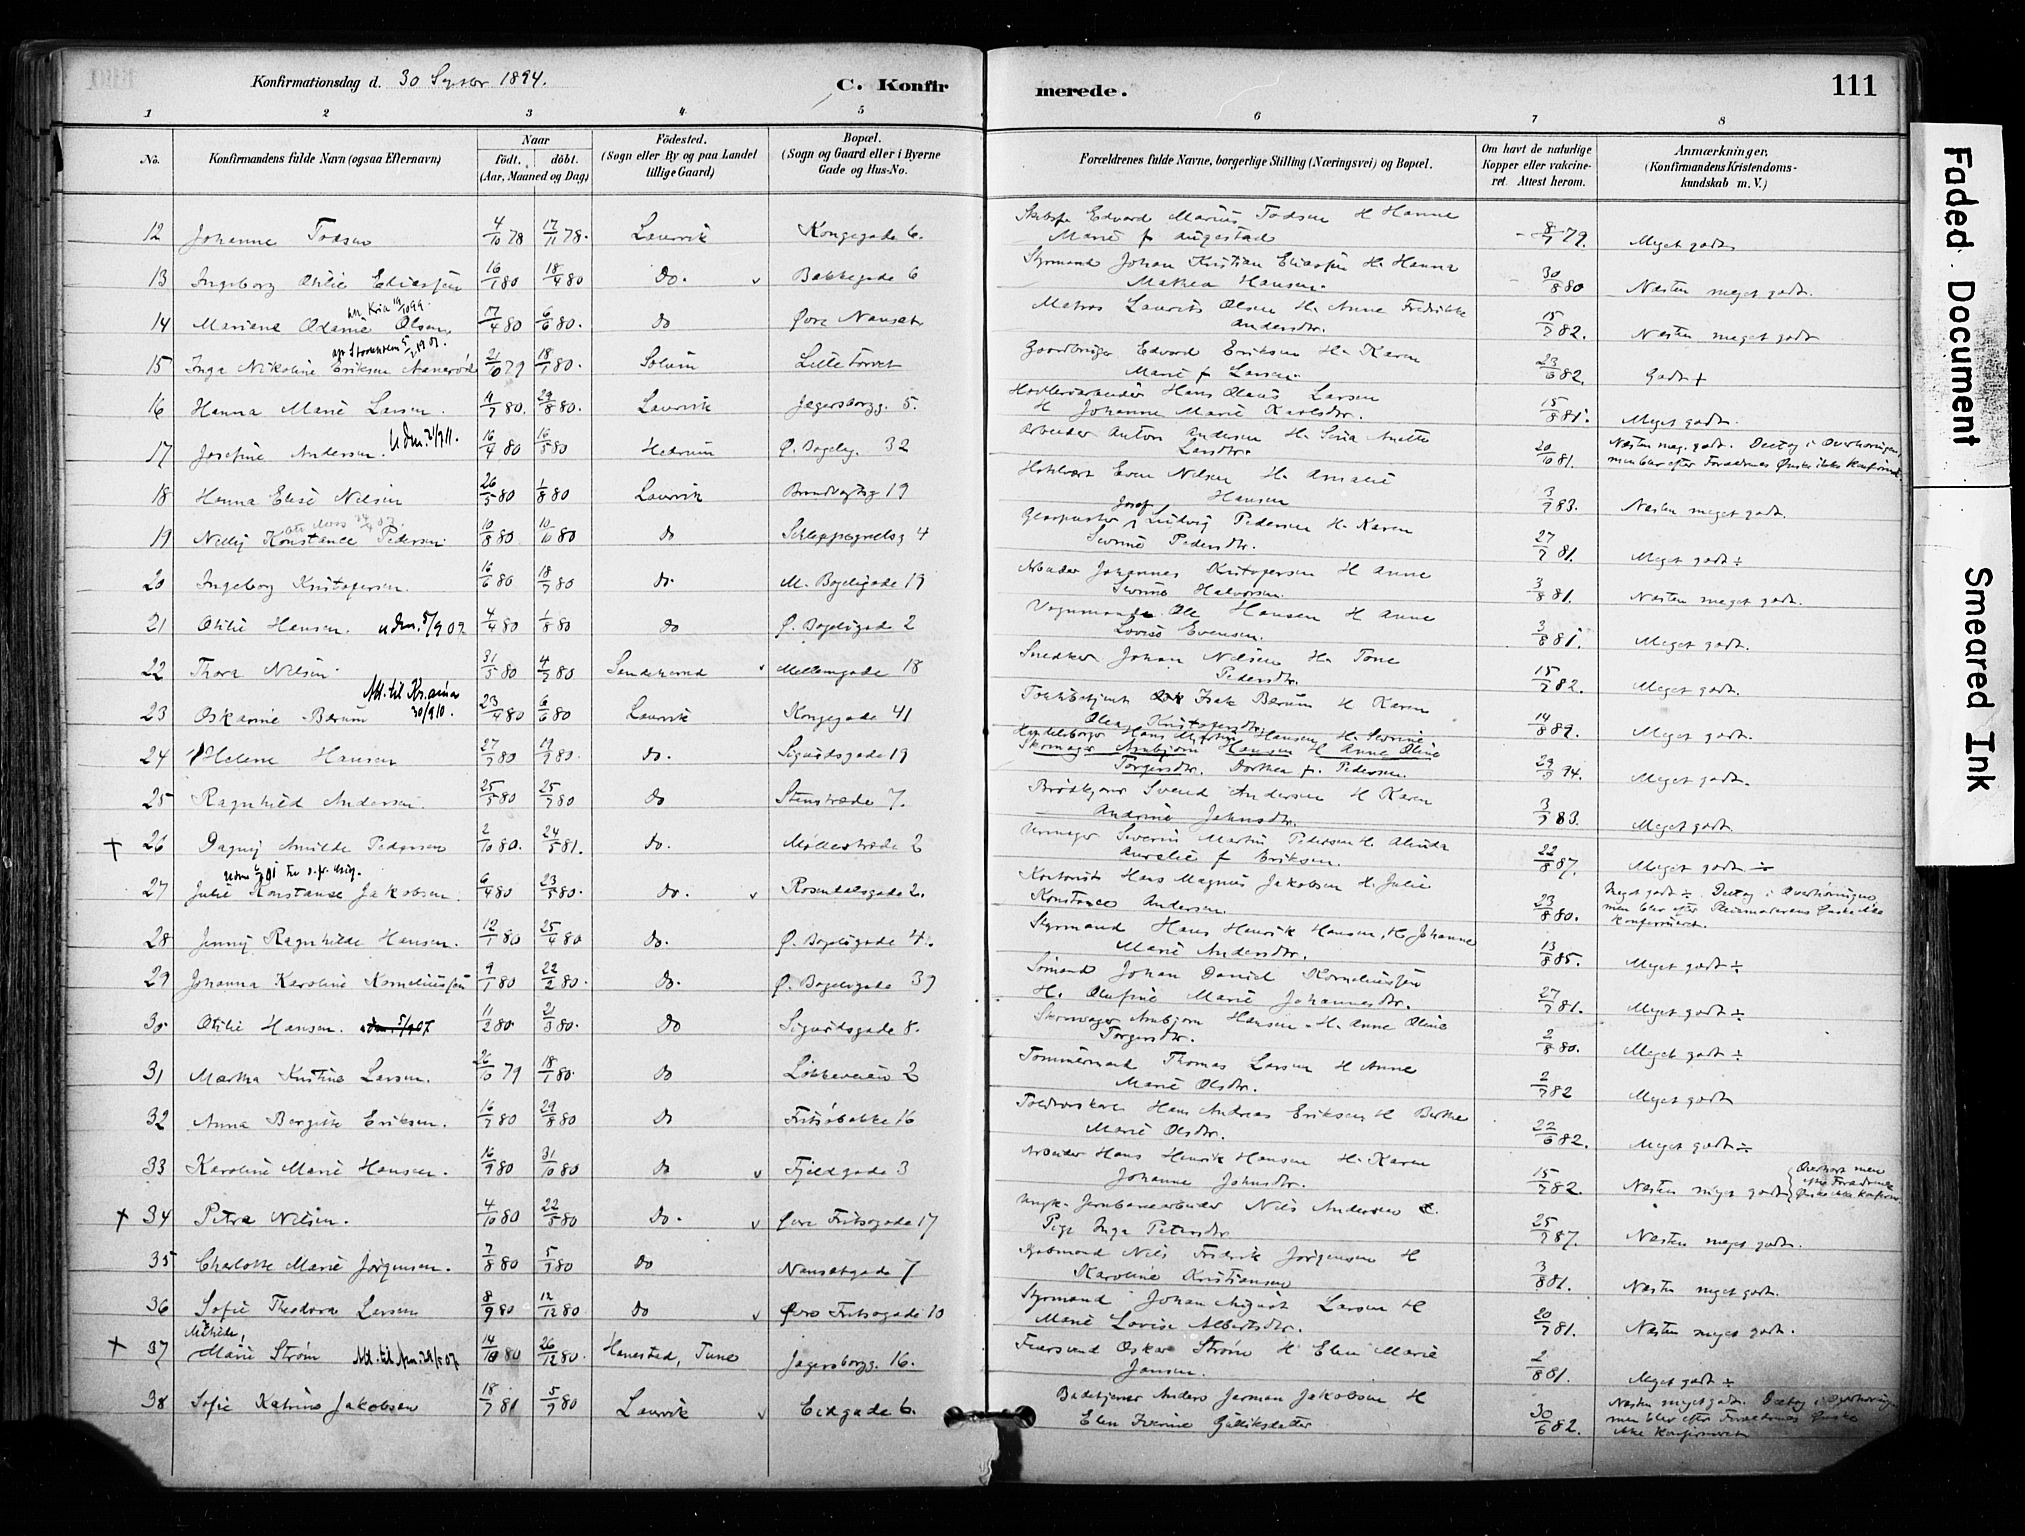 Konfirmationsdag d. 30 Septbr 1894.
C. Konfir
merede.
111
1 2 3 4 5 6 7 8
No.
Konfirmandens fulde Navn (ogsaa Efternavn)
Naar
födt. döbt.
(Aar, Maaned og Dag)
Födested.
(Sogn eller By og paa Landet
tillige Gaard)
Bopæl.
(Sogn og Gaard eller i Byerne
Gade og Hus-No.
Forældrenes fulde Navne, borgerlige Stilling (Næringsvei) og Bopæl.
Om havt de naturlige
Kopper eller vakcine-
ret. Attest herom.
Anmærkninger,
(Konfirmandens Kristendoms-
kundskab m. V.)
12 Johanne Todsen 4/10 78 17/11 78. Laurvik Kongegade 6. Edvard Marius Todsen H Hanne
Marie f Augestad 8/7 79. Meget godt
13 Ingeborg Otilie Eliassen 16/1 80 18/4 80 Do. Bakkegade 6 Styrmand Johan Kristian Eliassen H. Hanna
Mathea Hansen. 30/8 80 Næsten meget godt.
14 Mariane Olsen 17/4 80 6/6 80. Do Øvre Nanset Matros Laurits Olsen H. Anne Fredrikke
Andersdtr. 15/7 82. Næsten meget godt
15 Inga Nikoline Eriksen 21/10 79 18/1 80. Solum Lille Torvet Gaardbruger Edvard Eriksen H. Karen
Marie f Larsen. 23/6 82. Godt +
16 Hanna Marie Larsen. 4/7 80. 29/8 80. Laurvik Jegersborgg. 5. Hans Olaus Larsen
H Johanne Marie Karlsdtr. 15/8 81. Meget godt.
17 Josefine Andersen. 16/4 80 16/5 80 Hedrum Ø. Bøgelig. 32 Arbeider Anton Andersen H. Sina Anette
Larsdtr. 20/10 81. Næsten meg. godt. Deltog i Overhøringen,
men blev efter Forældrenes Ønske ikke konfirm.
18 Hanna Elise Nilsen 26/5 80 1/8 80 Laurvik Brandvagtsg 19 Even Nilsen H. Amalie
Hansen 3/7 83. Næsten meget godt.
19 Nelly Konstance Pedersen 10/8 80 10/10 80 Do 4 Glaspuster Josef Ludvig Pedersen H. Karen
Severine Pedersdtr. 27/7 81. Meget godt ÷
20 Ingeborg Kristofersen. 16/6 80 18/7 80 Do. M. Bøgeligade 19 Arbeider Johannes Kristofersen H Anne
Severine Halvorsen. 3/8 81. Næsten meget godt.
21 Otilie Hansen. 4/4 80 1/8 80 Do Ø. Bøgeligade 2 Vognmand Ole Hansen H Anne
Lovise Evensen. 3/8 81. Meget godt.
22 Thora Nilsen 31/5 80 4/7 80 Sandeherred Mellemgade 18 Snedker Johan Nilsen H. Tone
Pedersdtr. 15/7 82. Meget godt.
Att. til Kr.ania
30/9 10.
23 Oskarine Bærum 23/4 80 6/6 80 Laurvik Kongegade 41 Isak Bærum H Karen
Olea Kristofersdtr. 14/8 82. Meget godt.
24 Helene Hansen 27/7 80 19/9 80. Do. Sigurdsgade 19 Hans Martin Hansen H. Severine
Skomager Arnbjørn Hansen H Anne Oline
Torgersdtr. Dorthea f. Pedersen. 29/9 94. Meget godt.
25 Ragnhild Andersen. 25/5 80 25/7 80 Do Stenstræde 7. Svend Andersen H Karen
Andrine Johnsdtr. 3/7 83. Meget godt.
26 Dagny Amilde Pedersen 2/10 80. 24/5 81. Do. Møllestræde 2 Urmager Severin Martin Pedersen H. Alvida
Aurelie f Eriksen. 22/8 87. Meget godt ÷
27 Julie Konstance Jakobsen. 6/4 80 23/5 80 Do. Rosendalsgade 2. Kontorist Hans Magnus Jakobsen H. Julie
Konstance Andersen. 23/8 80. Meget godt ÷. Deltog i Overhøringen
men blev efter Ønske ikke
konfirmeret.
28 Jenny Ragnhilde Hansen. 12/1 80 25/4 80 Do. Ø. Bøgeligade 4. Styrmand Hans Henrik Hansen, H. Johanne
Marie Andersdtr. 13/8 85. Meget godt ÷
29 Johanna Karoline Korneliussen 9/1 80 22/2 80. Do. Ø. Bøgeligade 39 Sömand Johan Daniel Korneliussen
H. Olufine Marie Johannesdtr. 27/7 81. Meget godt ÷
30 Otilie Hansen. 11/2 80. 21/3 80. Do Sigurdsgade 8. Skomager Arnbjørn Hansen H. Anne Oline
Torgersdtr. 2/8 80. Meget godt ÷
31 Martha Kristine Larsen. 26/10 79 18/1 80. Do Løkkeveien 2 Tømmermand Thomas Larsen H Anne
Marie Olsdtr. 2/7 82 Meget godt
32 Anna Bergitte Eriksen. 16/7 80 29/8 80 Do Fritsøbakke 16 Hans Andreas Eriksen H Berthe
Marie Olsdtr. 22/6 82. Meget godt ÷
33 Karoline Marie Hansen. 16/9 80 31/10 80 Do Fjeldgade 3 Arbeider Hans Henrik Hansen H. Karen
Johanne Johnsdtr. 15/7 82. Næsten meget godt Overhørt men
efter Forældrenes
Ønske ikke konfirm.
34 Petra Nilsen. 4/10 80 22/5 80 Do. Øvre Fritsøgade 17 Ungk. Jernbanearbeider Nils Andersen &
Pige Inga Petersdtr. 25/7 87. Næsten meget godt.
35 Charlotte Marie Jørgensen. 7/8 80 5/9 80 Do Nansetgade 7 Nils Fredrik Jørgensen H
Karoline Kristiansen 3/8 81. Næsten meget godt.
36 Sofie Theodora Larsen 8/9 80 12/12 80 Do Øvre Fritsøgade 10 Styrmand Johan August Larsen H
Marie Lovise Albertsdtr. 20/7 81. Næsten meget godt.
Mathilde,
37 Marie Strøm 14/10 80 26/12 80. Hanestad, Tune Jegersborgg. 16. Oskar Strøm H Elen Marie
Jansen. 2/8 81. Meget godt ÷
38 Sofie Katrine Jakobsen 18/7 80 5/9 80 Laurvik Eidgade 6. Badetjener Anders Herman Jakobsen H
Elen Iverine Gulliksdatter 30/6 82. Næsten meget godt. Deltog i Overhøringen
men blev efter Forældrenes Ønske
ikke konfirmeret
Faded Document
Smeared Ink